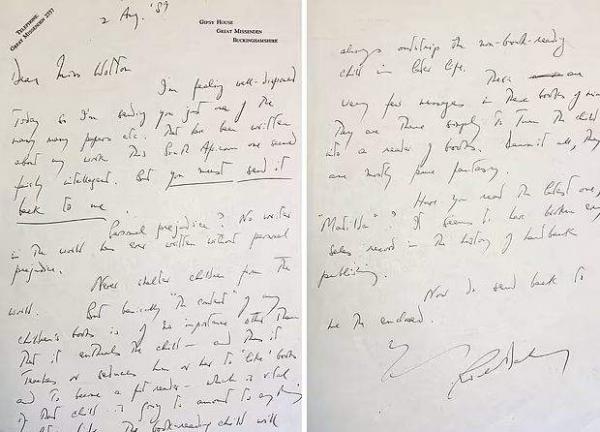 TELEPHONE
GREAT MISSENDEN 2757
GIPSY HOUSE
GREAT MISSENDEN
BUCKINGHAMSHIRE
2 Aug. '89
Dear Miss Wolton
I'm feeling well-disposed
today so I'm sending you just one of the
many many papers etc. that has been written
about my work. This South African one seemed
fairly intelligent. But you must send it
back to me.
Personal prejudice? No writer
in the world has ever written without personal
prejudice.
Never shelter children from the
world. But basically "the content" of any
children's books is of no importance other than
that it enthralls the child – and thus it
teaches or seduces him or her to 'like' books
and to become a fit reader – which is vital
if that child is going to amount to anything
in later life. The book-reading child will
always outstrip the non-book-reading
child in later life. There are
very few messages in these books of mine
They are there simply to turn the child
into a reader of books. Damn it all, they
are mostly pure fantasy.
Have you read the latest one,
"Matilda"? It seems to have broken every
sales record in the history of hardback
publishing.
Now do send back to
me the enclosed.
Roald Dahl